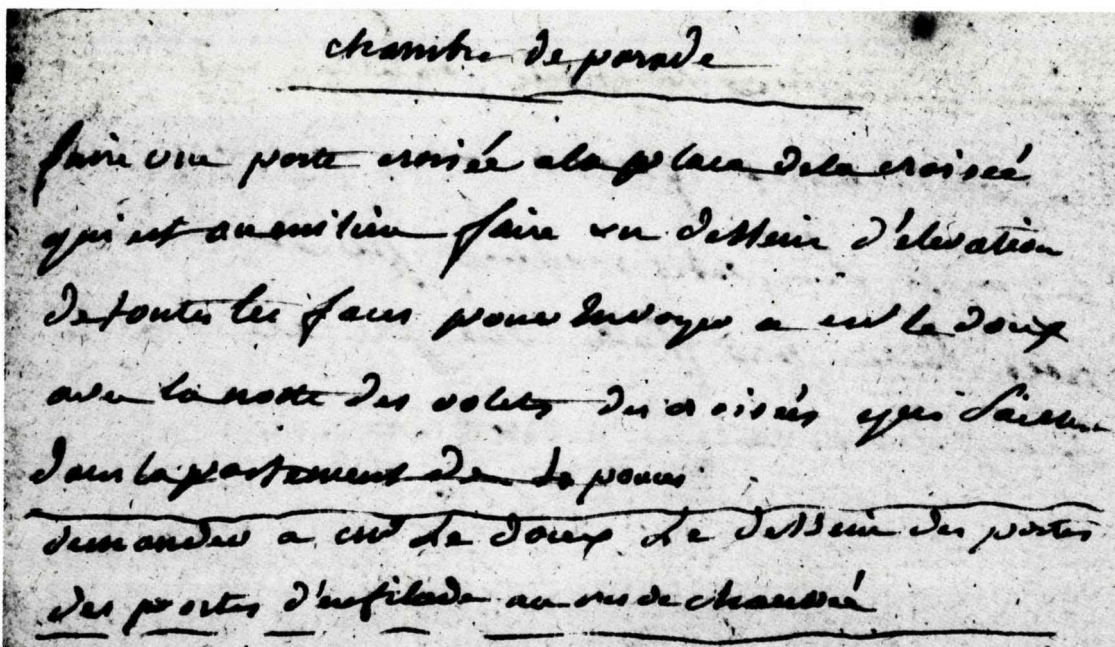 chambre de parade
faire une porte croisée a la place dela croisée
qui est au milieu faire un dessein d'élevation
de toutes les faces pour Envoyer a mr le doux
avec la notte des volets des croisées qui
dans lapartement de pouces
demander a mr Le doux Le dessein des portes
des portes d'enfilade au res de chaussée